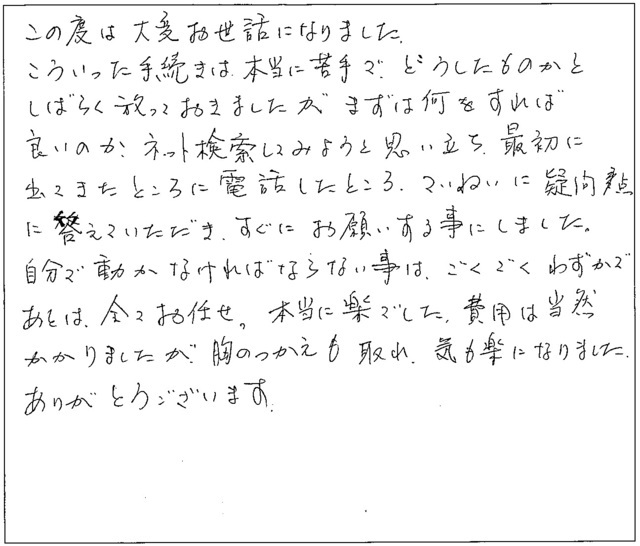 この度は大変お世話になりました。
こういった手続きは本当に苦手で、どうしたものかと
しばらく放っておきましたが まずは何をすれば
良いのか、ネット検索してみようと思い立ち、最初に
出てきたところに電話したところ、ていねいに疑問点
に答えていただき、すぐにお願いする事にしました。
自分で動かなければならない事は、ごくごくわずかで
あとは、全てお任せ。本当に楽でした。費用は当然
かかりましたが、胸のつかえも取れ、気も楽になりました。
ありがとうございます。